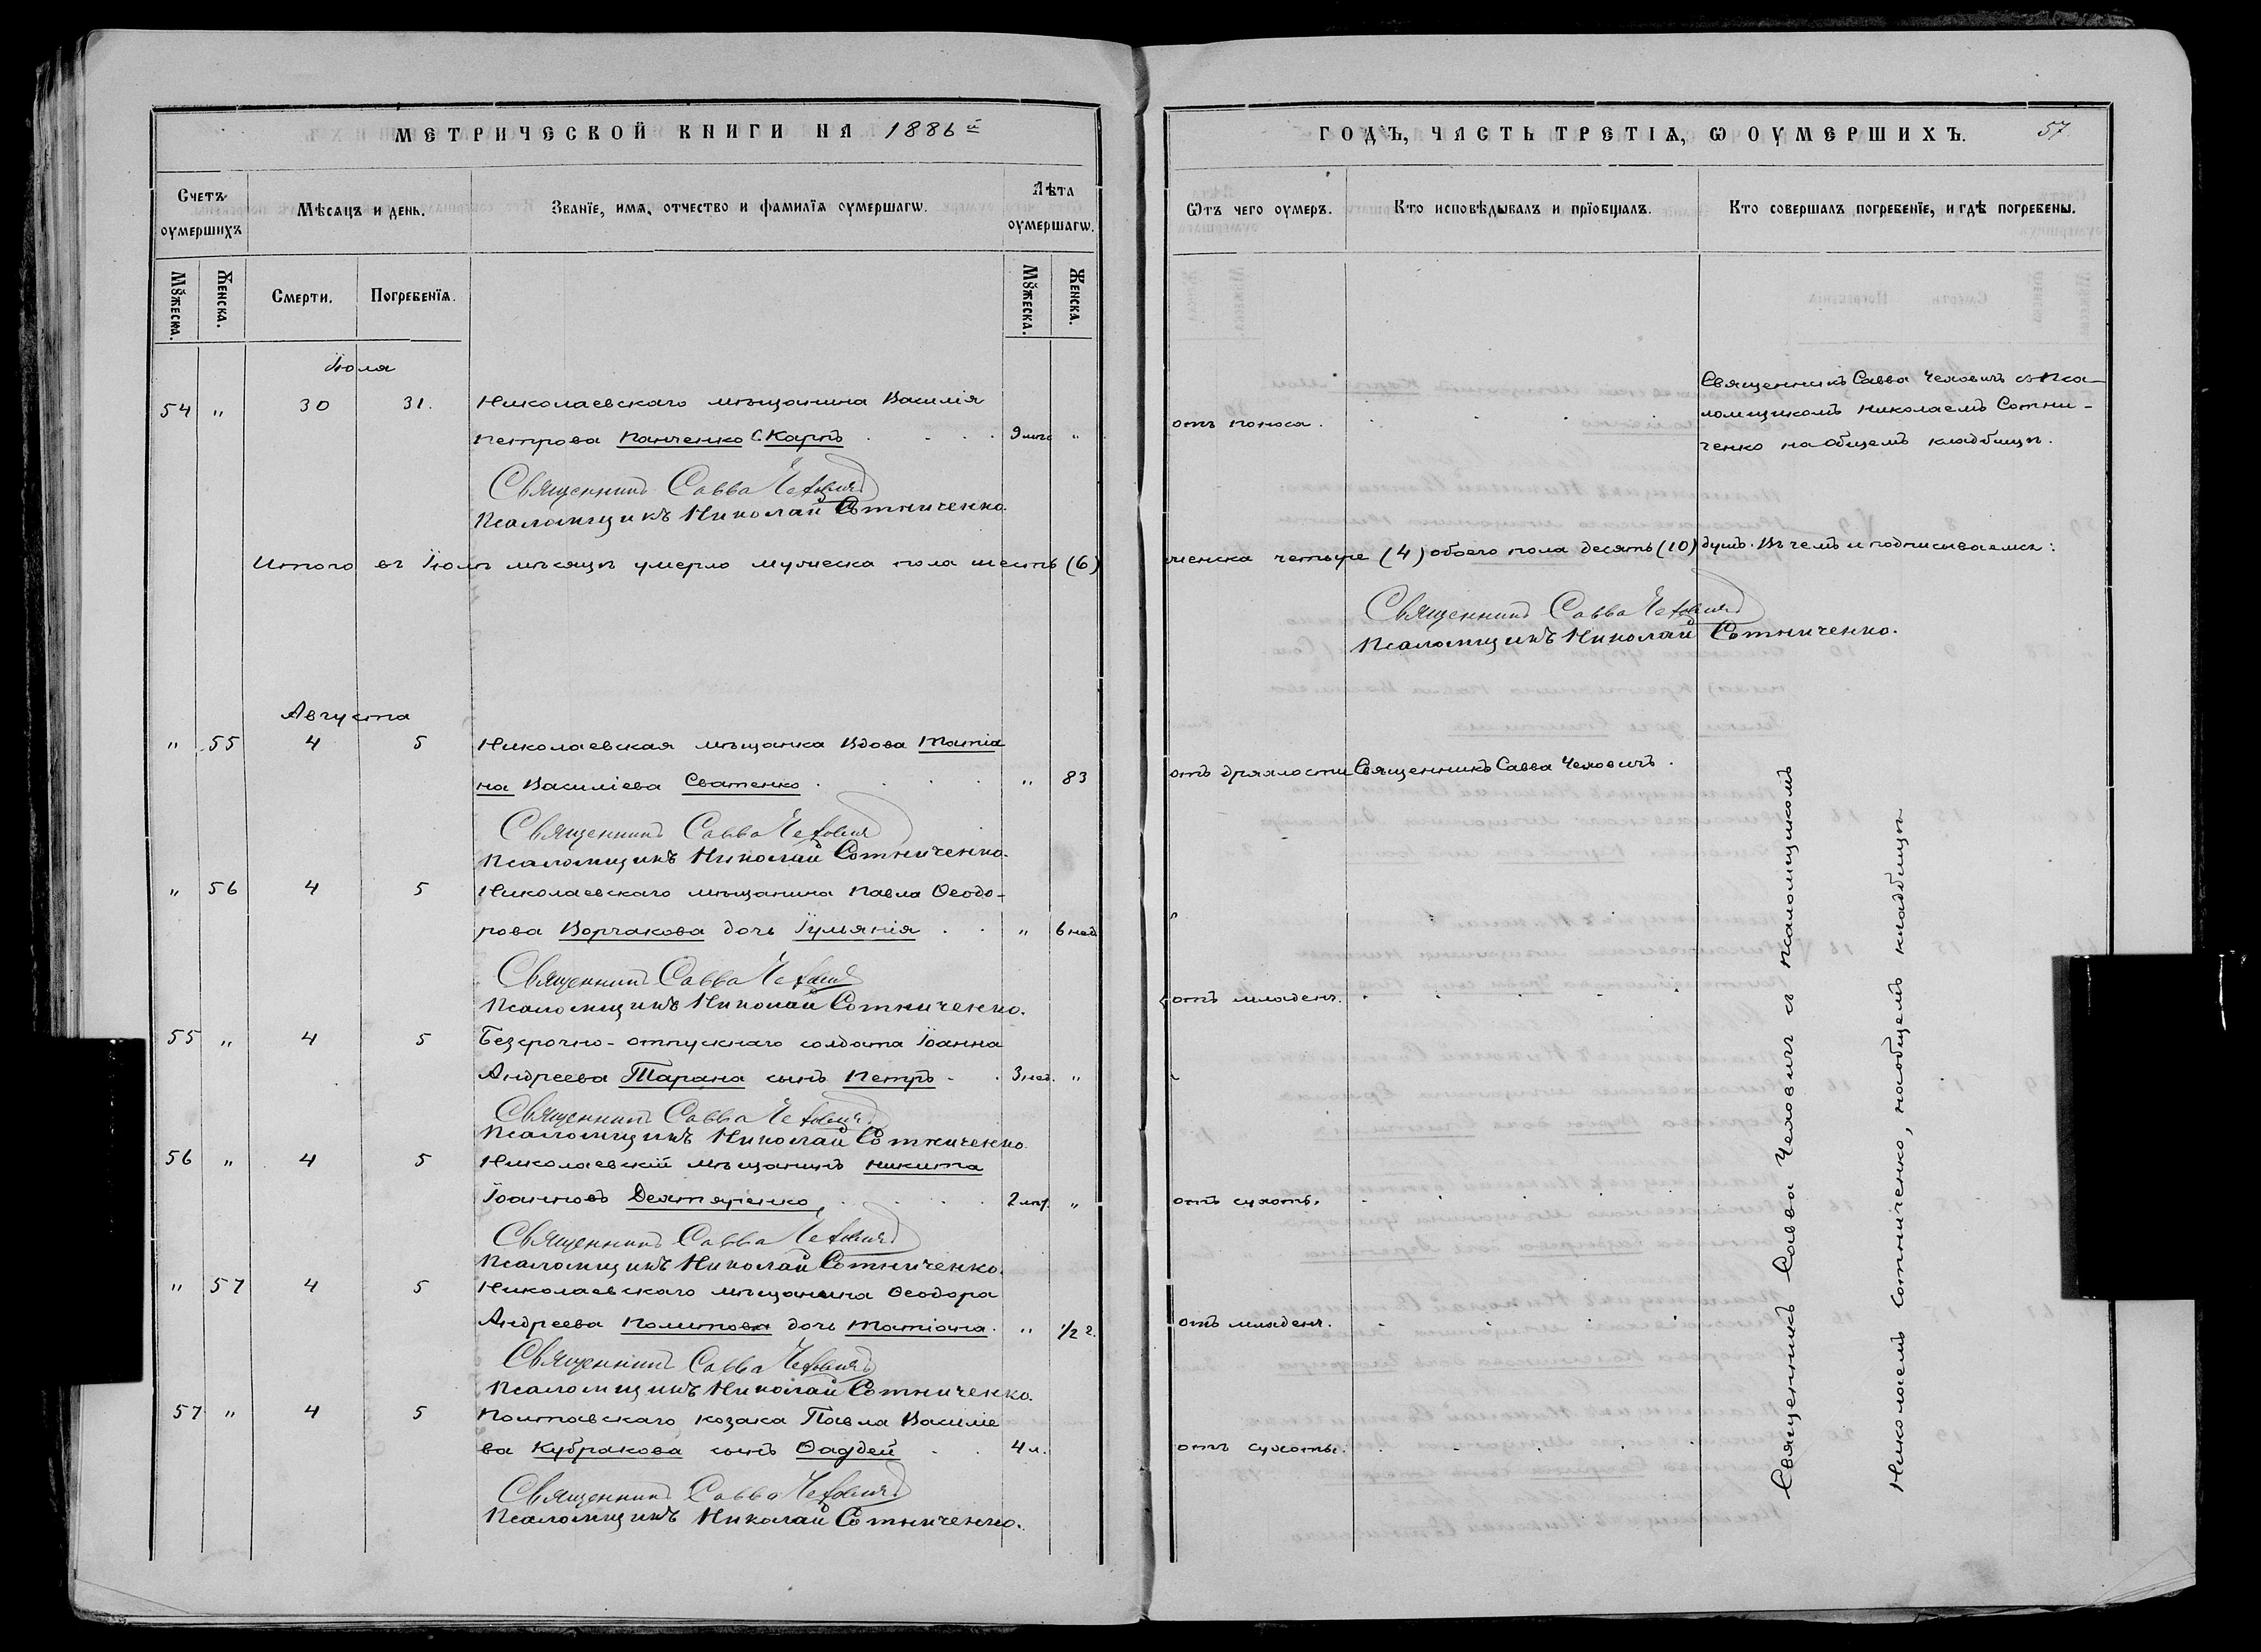 МЕТРИЧЕСКОЙ КНИГИ НА 1886 й
Счетъ оумершихъ
Мѣсѧцъ и день.
Званїе, имѧ, отчество и фамилїѧ оумершагѡ.
Лѣта оумершагѡ.
Мꙋжеска.
Женска.
Смерти.
Погребенїѧ.
Мꙋжеска.
Женска.
Іюля
54 " 30 31. Николаевскаго мѣщанина Василія
Петрова Панченко С. Карпъ 9 мѣс "
Священникъ Савва Чехович
Псаломщикъ Николай Сотниченко.
Итого въ Іюлѣ мѣсяцѣ умерло мужеска пола шесть (6)
Августа
" 55 4 5 Николаевская мѣщанка Вдова Татіа
на Василіева Сватенко " 83
Священникъ Савва Чехович
Псаломщикъ Николай Сотниченко.
" 56 4 5 Николаевскаго мѣщанина Павла Ѳеодо-
рова Ворчакова дочь Іуліанія " 6 нед
Священникъ Савва Чехович
Псаломщикъ Николай Сотниченко.
55 " 4 5 Безсрочно-отпускнаго солдата Іоанна
Андреева Тарана сынъ Петръ 3 нед. "
Священникъ Савва Чехович
Псаломщикъ Николай Сотниченко
56 " 4 5 Николаевскій мѣщанинъ Никита
Іоанновъ 2 "
Священникъ Савва Чехович
Псаломщикъ Николай Сотниченко.
" 57 4 5 Николаевскаго мѣщанина Ѳеодора
Андреева дочь Татіана. " 1/2 г.
Священникъ Савва Чехович
Псаломщикъ Николай Сотниченко.
57 " 4 5 Полтавскаго козака Павла Василіе
ва Кубракова сынъ Ѳаддей 4 л.
Священникъ Савва Чехович
Псаломщикъ Николай Сотниченко.
ГОДЪ, ЧАСТЬ ТРЕТІѦ, Ѡ ОУМЕРШИХЪ. 57
Ѿтъ чего оумеръ.
Кто исповѣдывалъ и прїобщалъ.
Кто совершалъ погребенїе, и гдѣ погребены.
отъ поноса.
Священникъ Савва Чеховичъ съ Пса-
ломщикомъ Николаемъ Сотни-
ченко на общемъ кладбищѣ.
женска четыре (4) обоего пола десять (10) душъ. Въ чемъ и подписываемся:
Священникъ Савва Чехович
Псаломщикъ Николай Сотниченко.
отъ дряхлости Священникъ Савва Чеховичъ.
отъ младенч.
отъ сухоты.
отъ младенч.
отъ сухоты.
Священникъ Савва Чеховичъ съ псаломщикомъ
Николаемъ Сотниченко, на общемъ кладбищѣ